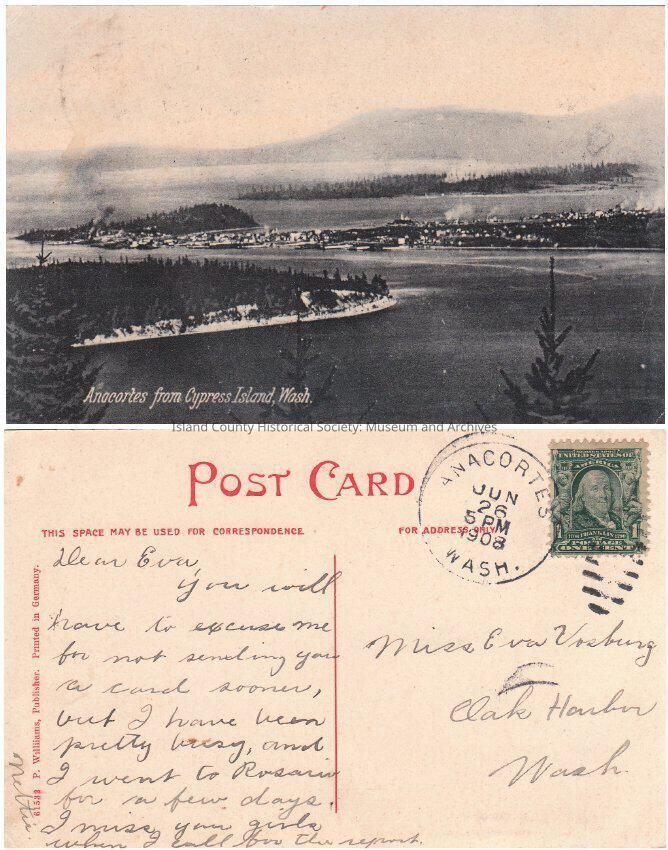 Anacortes from Cypress Island, Wash.
Island County Historical Society: Museum and Archives
POST CARD
THIS SPACE MAY BE USED FOR CORRESPONDENCE
FOR ADDRESS ONLY
ANACORTES
JUN
26
5 PM
1908
WASH.
UNITED STATES OF
AMERICA
1
FRANKLIN
POSTAGE
ONE CENT
61532 P. Williams, Publisher. Printed in Germany.
Dear Eva,
You will
have to excuse me
for not sending you
a card sooner,
but I have been
pretty busy, and
I went to Rosario
for a few days.
I miss you girls
when I call for the report.
Miss Eva Vosburg
Oak Harbor
Wash.